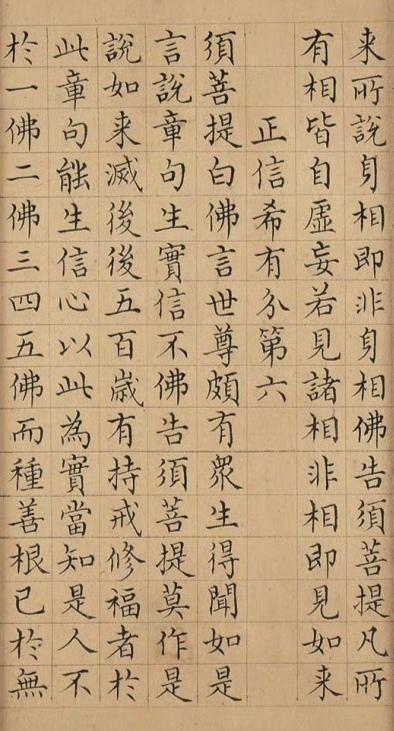 来所說身相即非身相佛告須菩提凡所
有相皆自虛妄若見諸相非相即見如来
正信希有分第六
須菩提白佛言世尊頗有衆生得聞如是
言說章句生實信不佛告須菩提莫作是
說如来滅後後五百歲有持戒修福者於
此章句能生信心以此為實當知是人不
於一佛二佛三四五佛而種善根已於無